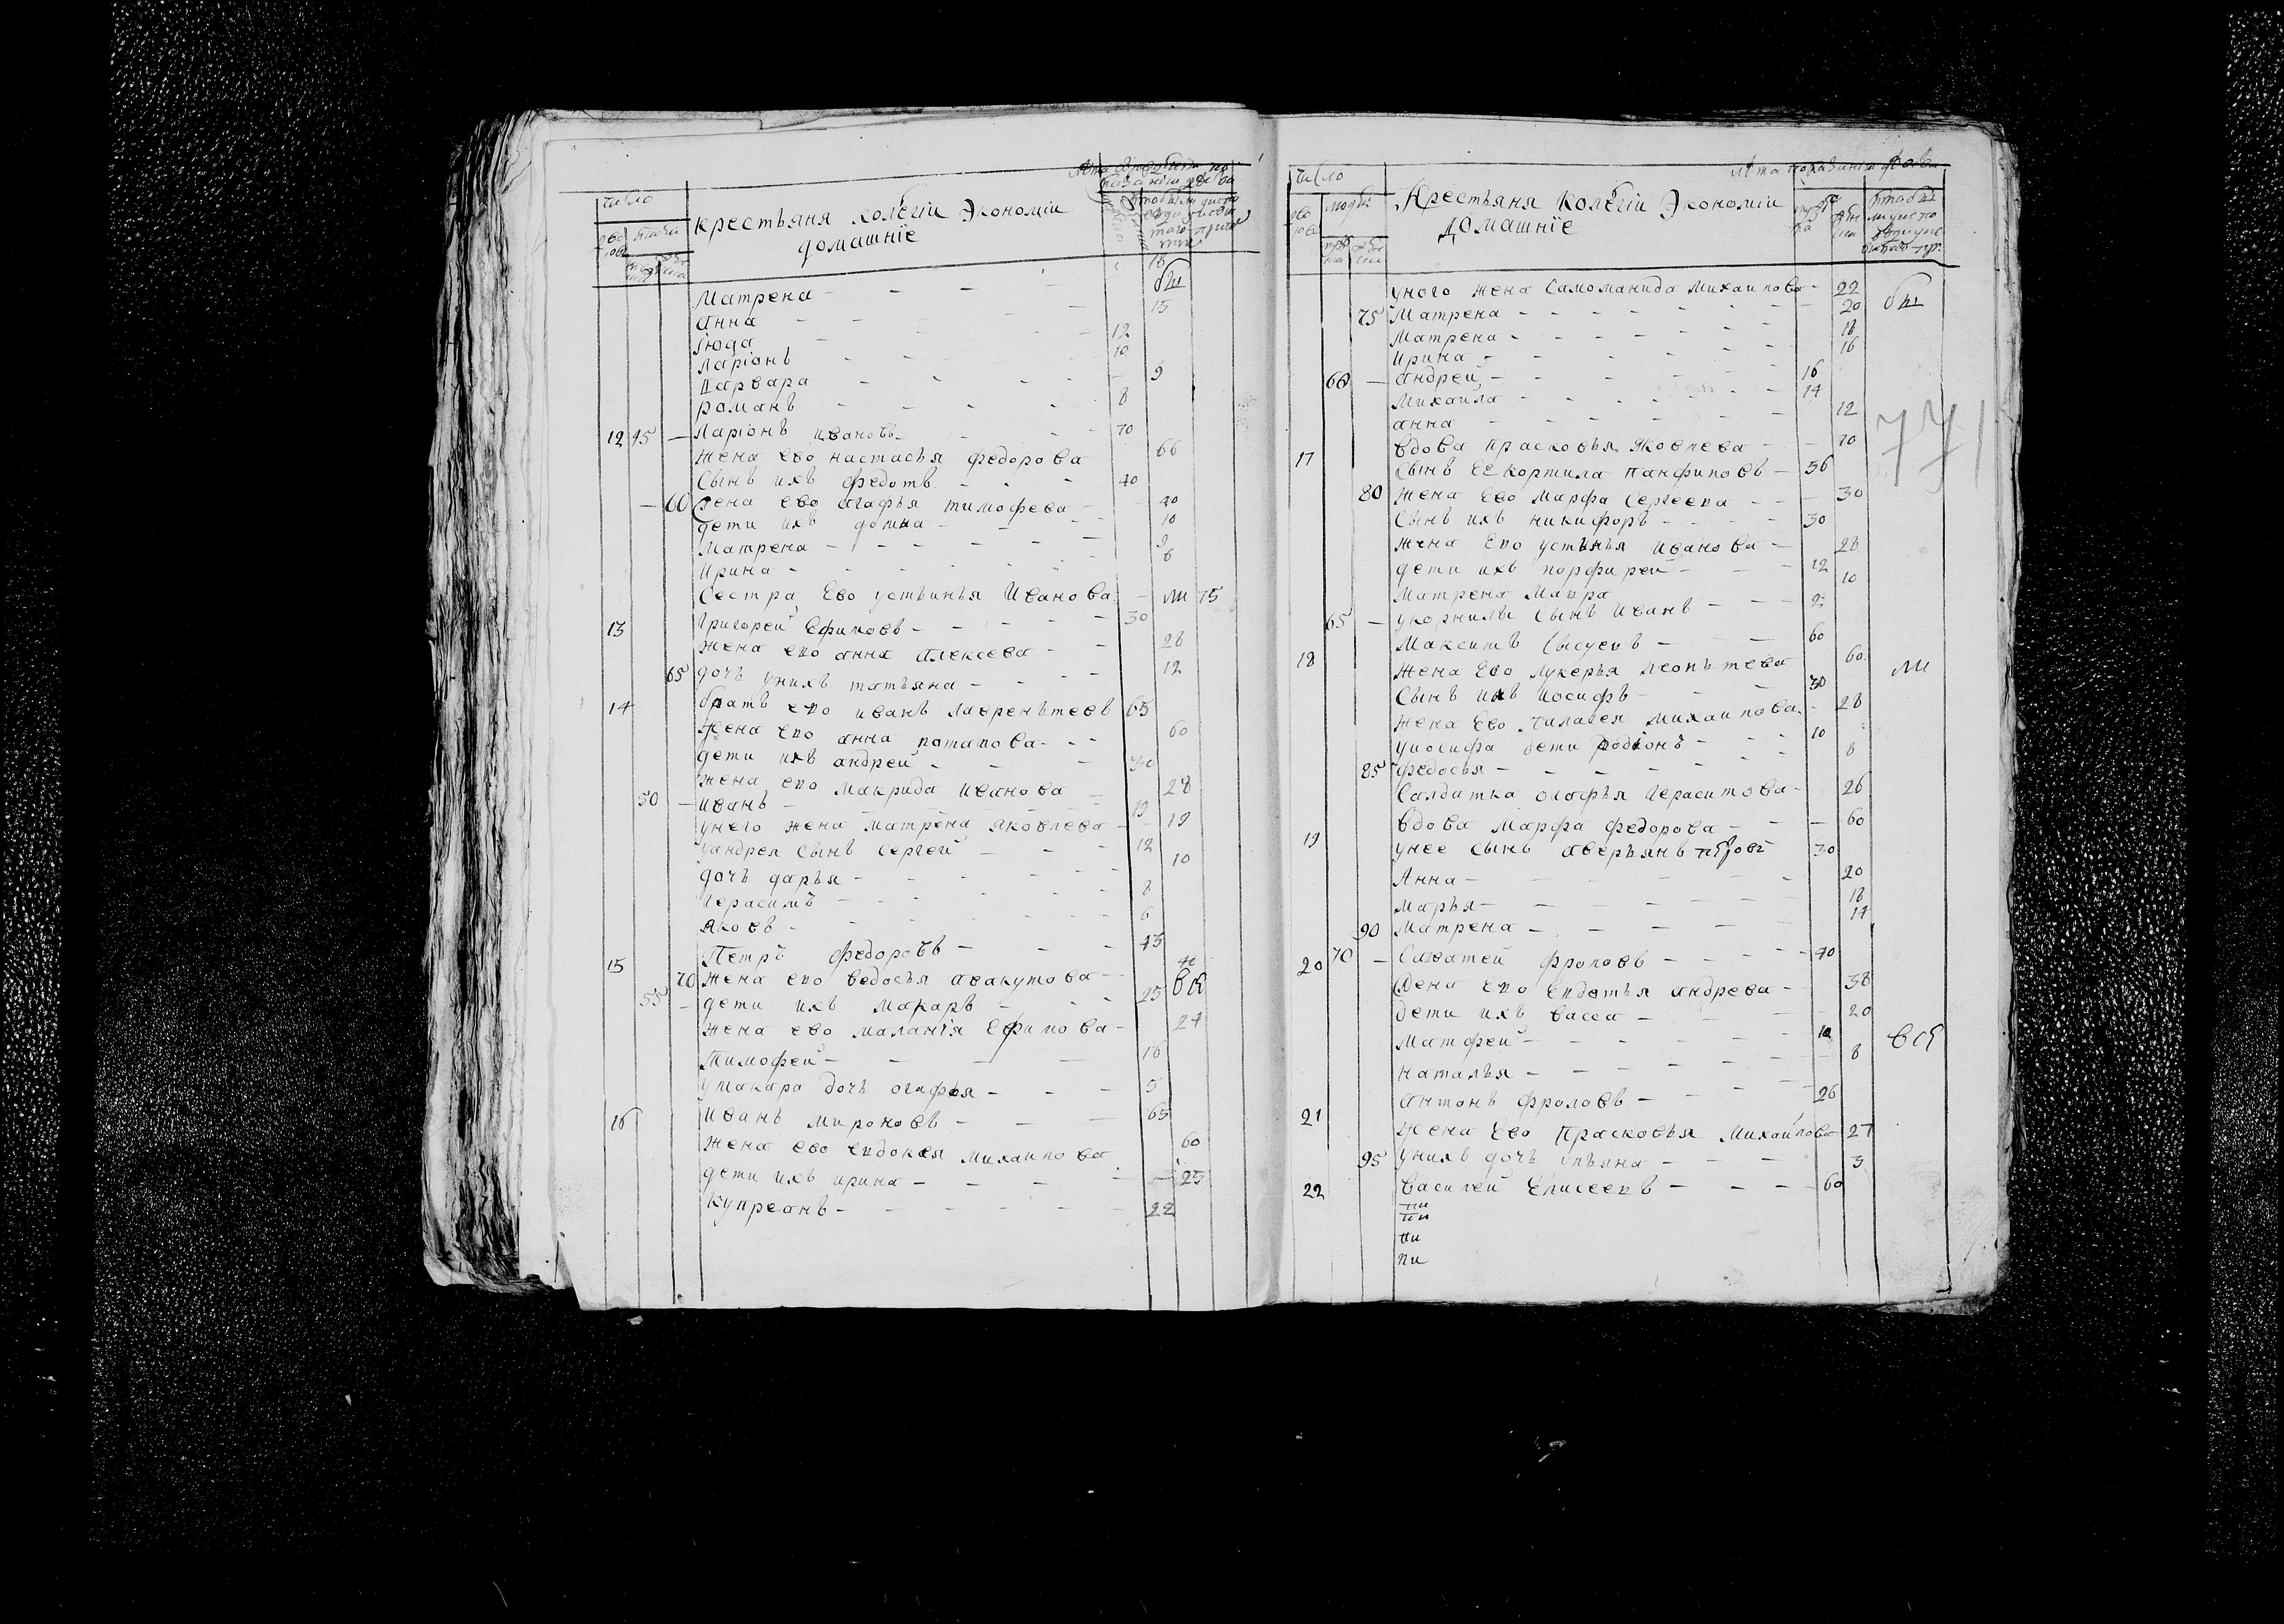 число
крестьяня колегiи Экономiи
домашнiе
18
Матрена - - - бы
Анна - - - 15
12
Ларiонъ - - - 10
Варвара - - - 9
романъ - - - 8
12 45 - Ларiонъ ивановъ - - 70
жена ево настасья федорова 66
Сынъ ихъ федотъ - - - 40
- 60 жена ево агафья тимофеева - 40
дети ихъ домна - - - 10
Матрена - - - - 9
Ирина - - - - 6
Сестра Ево устинья Иванова - 75
13 Григореи Ефимовъ - - - 30
жена ево анна Алексеева - - 28
65 дочь унихъ татьяна - - - 12
14 братъ ево иванъ лаврентьевъ 65
жена ево анна потапова - - 60
дети ихъ андреи - - - 30
жена ево макрида иванова - 28
50 - иванъ - - - 19
унего жена матрена яковлева - 19
уандрея сынъ Сергеи - - - 12
дочь дарья - - - 10
Герасимъ - - - 8
яковъ - - - 6
15 Петръ федоровъ - - - 43
70 жена ево ведосья авакумова - - 40
55 - дети ихъ макаръ - - - 25
жена ево маланiя Ефимова - 24
Тимофеи - - - 16
умакара дочь огафья - - - 5
16 иванъ мироновъ - - - 65
жена ево евдокея михаилова 60
дети ихъ ирина - - - - 25
купреанъ - - - - 22
число людей
Крестьяня Колегiи Экономiи
домашнiе
унего жена Саломанида михаилова - 22
75 Матрена - - - - 20 бы
Матрена - - - - 18
Ирина - - - - 16
60 - андреи - - - - 16
Михаила - - - - 14
анна - - - - 12
17 вдова прасковья яковлева - - 70
сынъ Ее кормила панфиловъ - 56
80 жена Ево марфа Сергеева - - 30
Сынъ ихъ никифоръ - - - 30
жена Ево устинья иванова - 28
дети ихъ порфиреи - - - 12
Матрена Мавра 10
65 - укорнилы сынъ Иванъ - - -
18 Максимъ Сысуевъ - - - 60
жена Ево лукерья леонтьева 60
Сынъ ихъ иосифъ - - - 30
жена Ево михаилова - 28
уиосифа дети родiонъ - - - 10
85 федосья - - - - 8
Салдатка огафья Герасимова - 26
19 вдова марфа федорова - - 60
унее сынъ аверьянъ 30
Анна - - - - 20
марья - - - - 18
90 Матрена - - - - 14
20 70 - Саватеи фроловъ - - - 40
жена Ево Евдотья андреева - 38
дети ихъ васса - - - 20
матфеи - - - - 10
наталья - - - - 8
21 антонъ фроловъ - - - 26
жена Ево Прасковья михаилова 27
95 унихъ дочь ульяна - - - 3
22 василеи Елисеевъ - - - 60